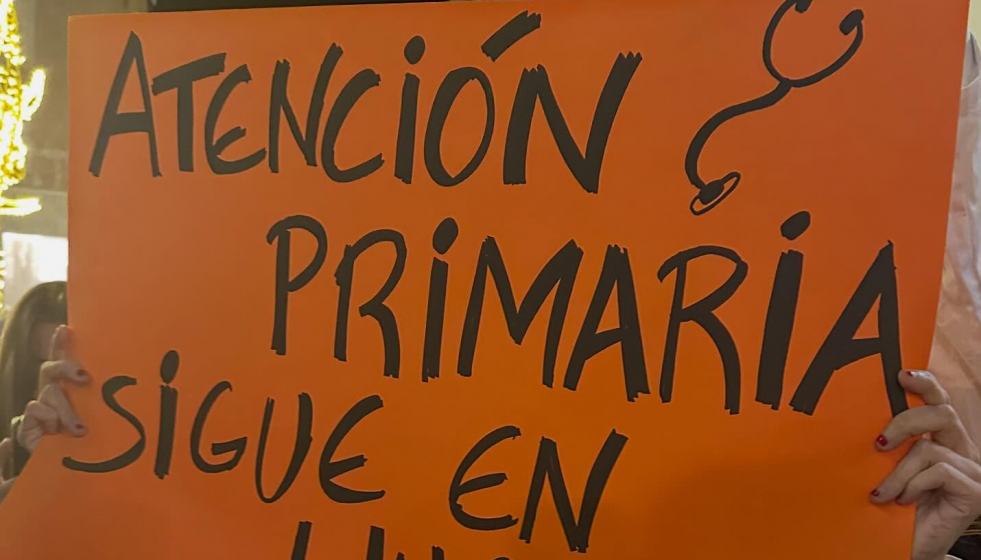 ATENCIÓN
PRIMARIA
SIGUE EN